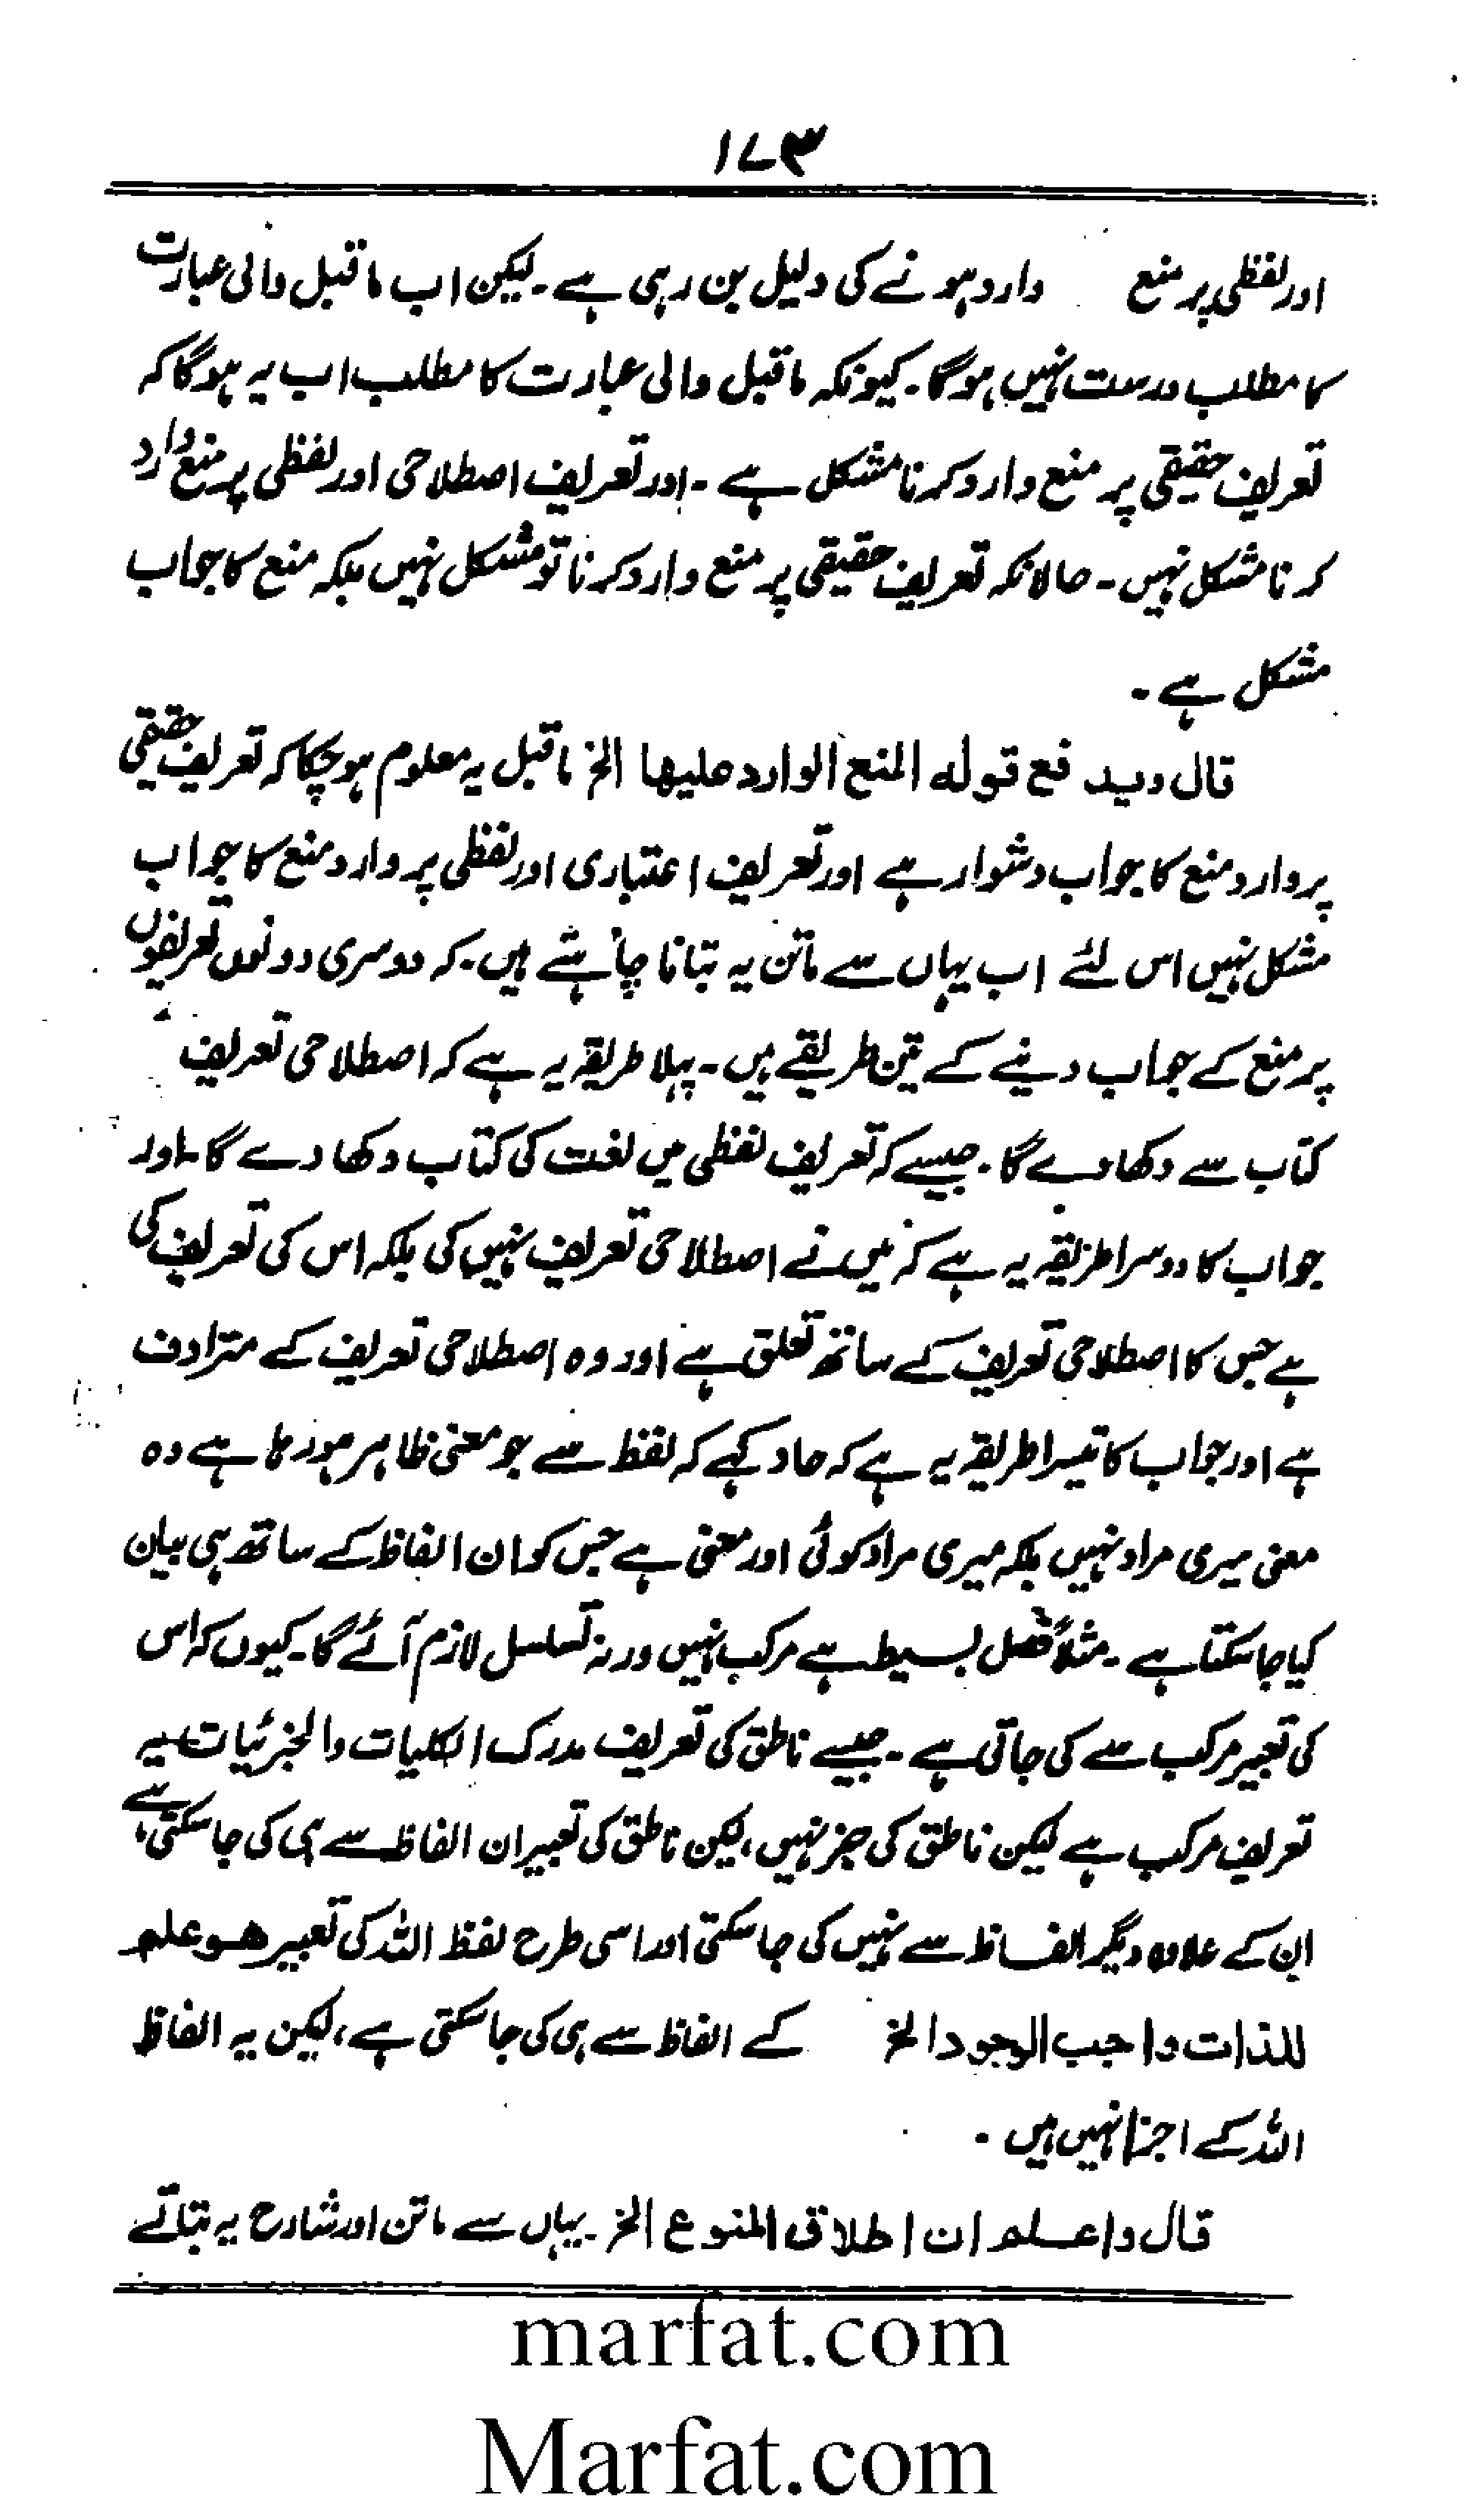 ۱۷۳
اور لفظی پر منع وارد ہونے کی دلیل بن رہی ہے۔ لیکن اب ماقبل والی عبارت
کا مطلب درست نہیں ہوگا۔ کیونکہ ماقبل والی عبارت کا مطلب اب یہ ہوگا کہ
تعریف حقیقی پر منع وارد کرنا مشکل ہے۔ اور تعریف اصطلاحی اور لفظی پر منع وارد
کرنا مشکل نہیں۔ حالانکہ تعریف حقیقی پر منع وارد کرنا تو مشکل نہیں بلکہ منع کا جواب
مشکل ہے۔
قال ویدفع قوله المنع الوارد علیها الخ ماقبل یہ معلوم ہو چکا کہ تعریف حقیقی
پر وارد منع کا جواب دشوار ہے اور تعریف اعتباری اور لفظی پر وارد منع کا جواب
مشکل نہیں اس لئے اب یہاں سے ماتن یہ بتانا چاہتے ہیں۔ کہ دوسری دونوں تعریفوں
پر منع کے جواب دینے کے تین طریقے ہیں۔ پہلا طریقہ یہ ہے کہ اصطلاحی تعریف
کتاب سے دکھا دے گا۔ جیسے کہ تعریف لفظی میں لغت کی کتاب دکھا دے گا۔ اور
جواب کا دوسرا طریقہ یہ ہے کہ میں نے اصطلاحی تعریف نہیں کی بلکہ اس کی تعریف کی
ہے جس کا اصطلاحی تعریف کے ساتھ تعلق ہے اور وہ اصطلاحی تعریف کے مترادف
ہے اور جواب کا تیسرا طریقہ یہ ہے کہ حاد کہے کہ لفظ سے جو معنی ظاہر ہو رہا ہے وہ
معنی میری مراد نہیں بلکہ میری مراد کوئی اور معنی ہے جس کو ان الفاظ کے ساتھ ہی بیان
کیا جا سکتا ہے۔ مثلاً فصل بسیط ہے مرکب نہیں ورنہ تسلسل لازم آئے گا۔ کیوں کہ اس
کی تعبیر مرکب سے کی جاتی ہے۔ جیسے ناطق کی تعریف مدرک الکلیات والجزئیات یہ
تعریف مرکب ہے لیکن ناطق کی جز نہیں، لیکن ناطق کی تعبیر ان الفاظ سے ہی کی جا سکتی ہے
ان کے علاوہ دیگر الفاظ سے نہیں کی جا سکتی اور اسی طرح لفظ اللہ کی تعبیر هو علم
للذات واجب الوجود الخ کے الفاظ سے ہی کی جا سکتی ہے، لیکن یہ الفاظ
اللہ کے اجزا نہیں ہیں۔
قال واعلم ان اطلاق المنوع الخ۔ یہاں سے ماتن اور شارح یہ بتاتے
marfat.com
Marfat.com